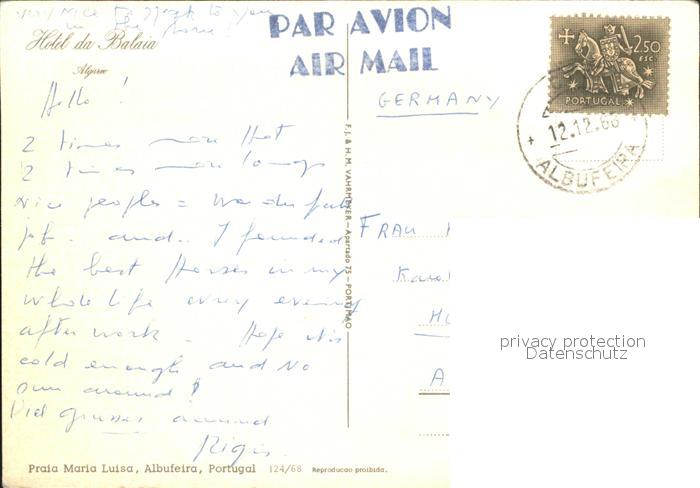 very nice to speak to you
in the phone!
Hotel da Balaia
Algarve
Hello!
2 times more that
2 times more
nice peoples = wonderful
job. and.. I founded
the best Horses in my
whole life every evening
after work. Hope it is
cold enough and No
sun around!
Viel grusse around
PAR AVION
AIR MAIL
GERMANY
F.J. & H.M. VAHRMEYER — Apartado 75 — PORTIMAO
2.50
ESC
PORTUGAL
12.12.68
ALBUFEIRA
FRAU
privacy protection
Datenschutz
Praia Maria Luisa, Albufeira, Portugal 124/68 Reproducao proibida.